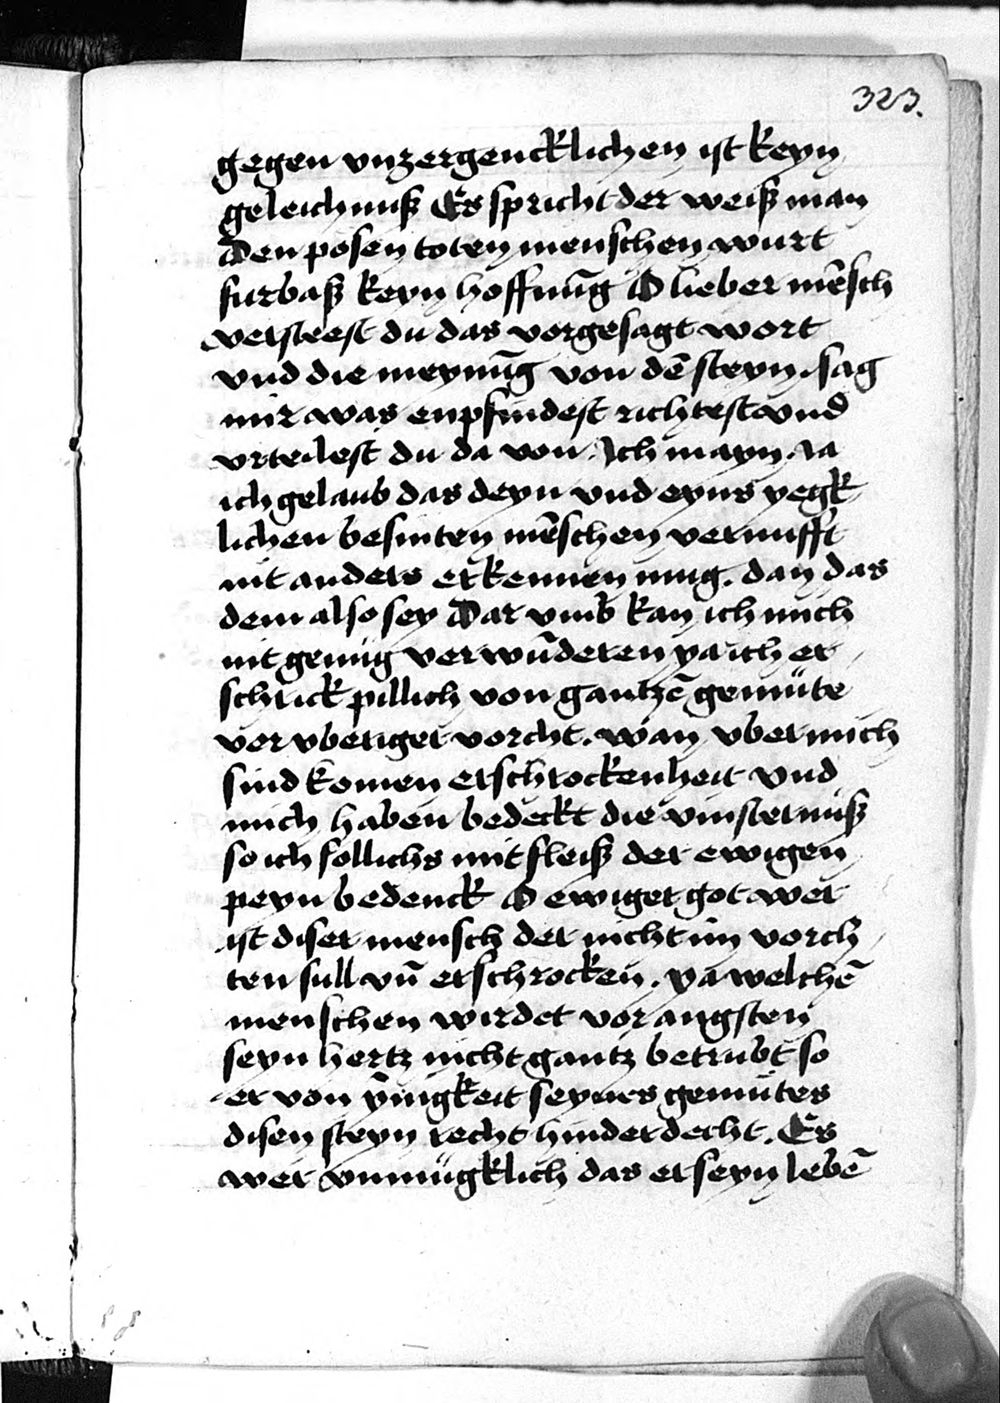 323.
gegen vnzergencklichen ist keyn
geleichnuß Es spricht der weiß man
Den posen toten menschen wurt
furbaß keyn hoffnu̅g O lieber me̅sch
versteest du das vorgesagt wort
vnd die meynu̅g von de̅ steyn. sag
mir was enpfindest richtest vnd
vrteilest du da von. Ich mayn. Ja
ich gelaub das deyn vnd eyns yegk
lichen besinten me̅schen vernufft
nit anders erkennen mug. dan das
dem also sey Dar vmb kan ich mich
nit genug verwu̅deren ya ich er
schrick pillich von gantze̅ gemüte
vor vberiger vorcht. wan vber mich
sind komen erschrockenheit vnd
mich haben bedeckt die vinsternuß
so ich sollichs mit fleiß der ewigen
peyn bedenck O ewiger got wer
ist diser mensch der nicht im vorch
ten sull vn̅ erschrocken. ya welche̅
menschen wirdet vor angsten
seyn hertz nicht gantz betrubt so
er von ynigkeit seynes gemütes
disen steyn recht hinderdecht. Es
wer vnmügklich das er seyn lebe̅